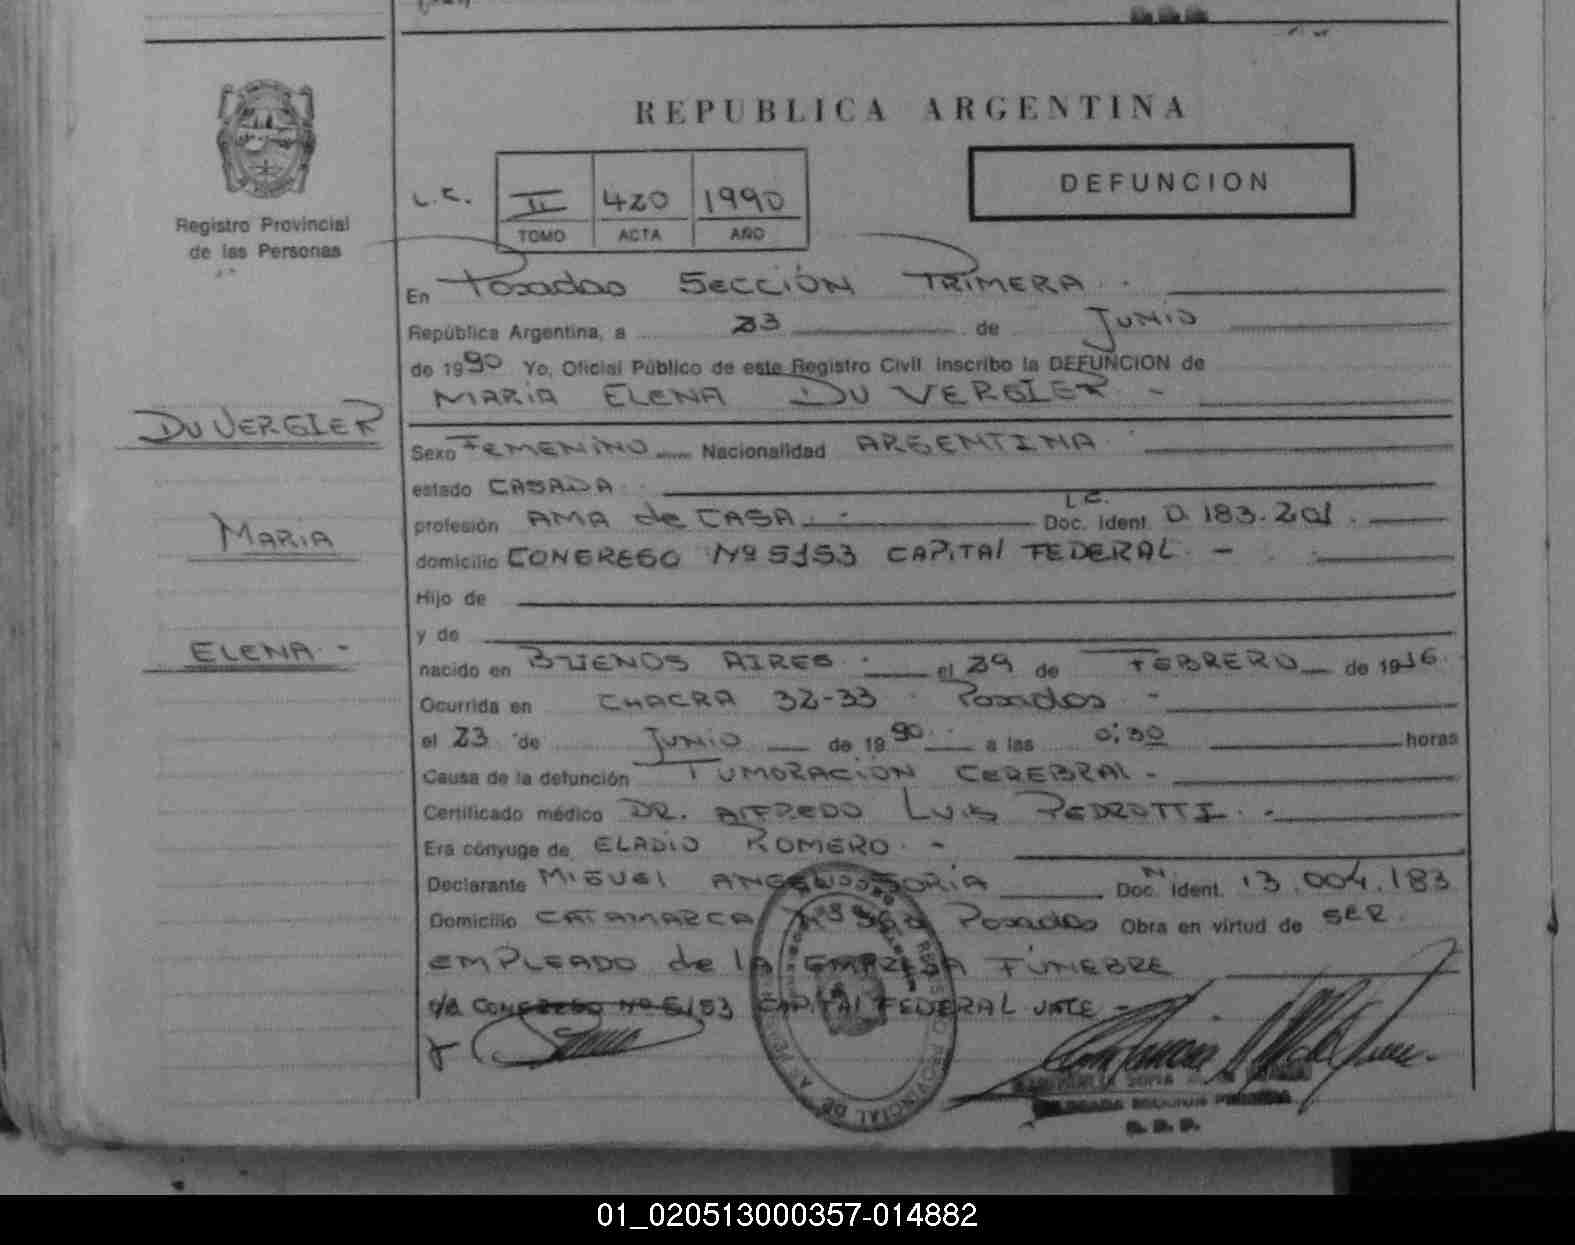 REPUBLICA ARGENTINA
DEFUNCION
L.C. II 420 1990
TOMO ACTA AÑO
Registro Provincial
de las Personas
En Posadas SECCIÓN PRIMERA
República Argentina, a 23 de JUNIO
de 1990 Yo, Oficial Público de este Registro Civil inscribo la DEFUNCION de
MARIA ELENA DU VERGIER -
DU VERGIER
MARIA
ELENA -
Sexo FEMENINO Nacionalidad ARGENTINA
estado CASADA
profesión AMA de CASA - Doc. Ident. L.C. 0.183.201
domicilio CONGRESO Nº 5153 CAPITAL FEDERAL -
Hijo de
y de
nacido en BUENOS AIRES el 29 de FEBRERO de 1916
Ocurrida en CHACRA 32-33 Posadas -
el 23 de JUNIO de 1990 a las 0:30 horas
Causa de la defunción TUMORACIÓN CEREBRAL -
Certificado médico DR. ALFREDO LUIS PEDROTTI -
Era cónyuge de ELADIO ROMERO -
Declarante MIGUEL ANGEL SORIA Doc. Ident. 13.004.183
Domicilio CATAMARCA Posadas Obra en virtud de SER
EMPLEADO de la EMPRESA FÚNEBRE
CONGRESO Nº 5153 CAPITAL FEDERAL VALE -
REGISTRO PROVINCIAL DE LAS PERSONAS
01_020513000357-014882